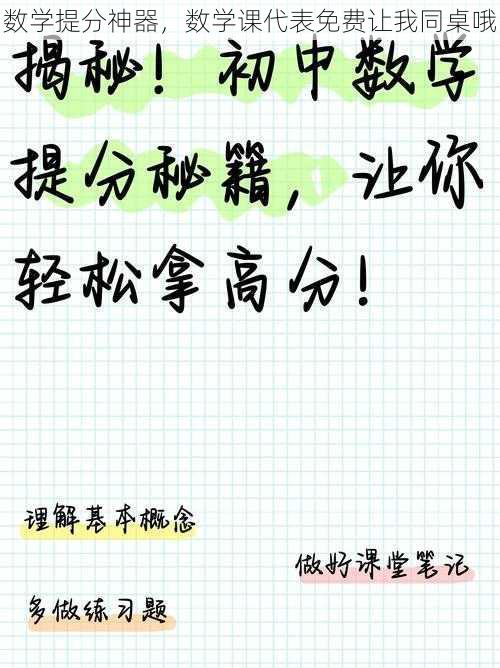 数学提分神器，数学课代表免费让我同桌哦
揭秘！初中数学
提分秘籍，让你
轻松拿高分！
理解基本概念
做好课堂笔记
多做练习题